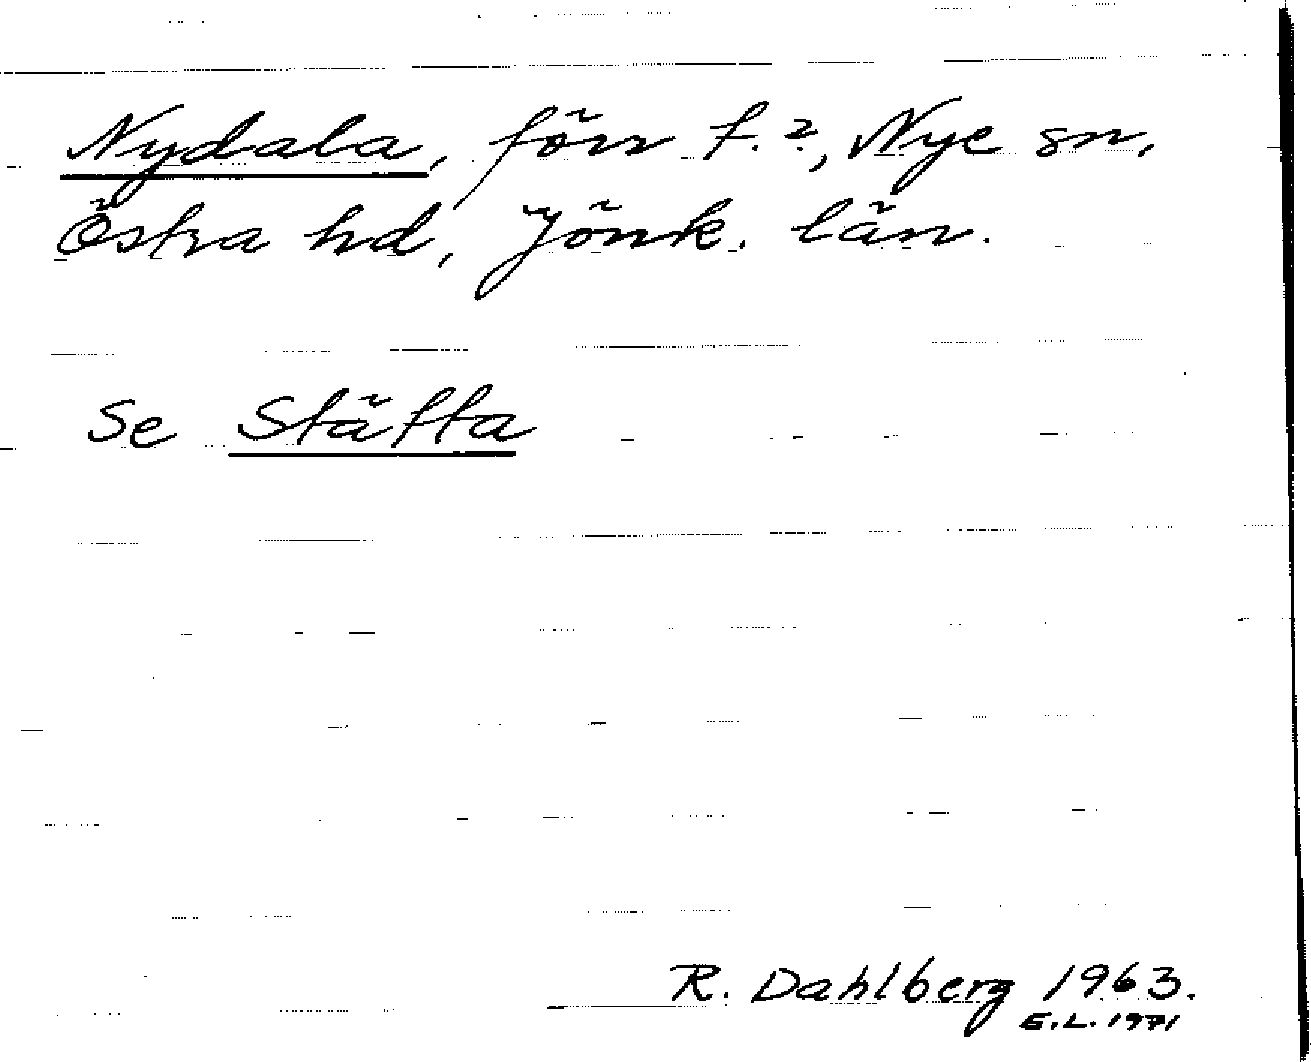 Nydala, förr t.?, Nye sn,
Östra hd, Jönk. län.
Se Stätta
R. Dahlberg 1963.
E.L. 1971